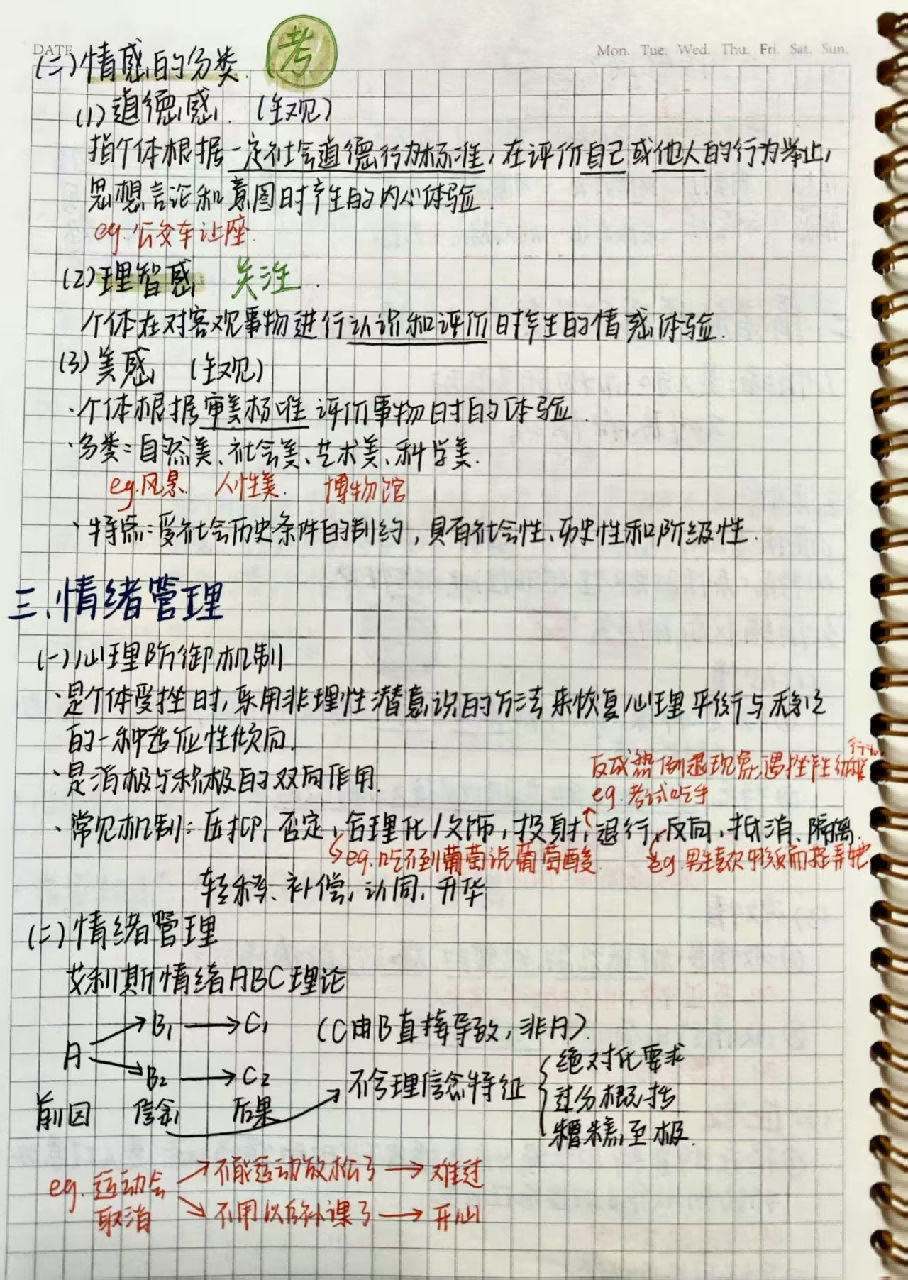 DATE
Mon. Tue. Wed. Thu. Fri. Sat. Sun.
(二)情感的分类 考
(1)道德感.(主观)
指个体根据一定社会道德行为标准,在评价自己或他人的行为举止,
思想言论和意图时产生的内心体验.
eg.公交车让座.
(2)理智感 关注.
个体在对客观事物进行认识和评价时产生的情感体验.
(3)美感 (主观)
·个体根据审美标准评价事物时的体验.
·分类:自然美、社会美、艺术美、科学美.
eg.风景 人性美. 博物馆
·特点:受社会历史条件的制约,具有社会性、历史性和阶级性.
三.情绪管理
(一)心理防御机制
·是个体受挫时,采用非理性潜意识的方法来恢复心理平衡与稳定
的一种适应性倾向.
·是消极与积极的双向作用.
反成熟倒退现象,遇挫产生幼稚行为
eg.考试吃手
·常见机制:压抑,否定,合理化/文饰,投射,退行,反向,抵消.隔离.
eg.吃不到葡萄说葡萄酸.
eg.男生喜欢女生反而捉弄她
转移、补偿,认同,升华
(二)情绪管理
艾利斯情绪ABC理论
A B₁ C₁ (C由B直接导致,非A).
B₂ C₂
前因 信念 后果
不合理信念特征
绝对化要求
过分概括
糟糕至极.
eg.运动会取消
不能运动放松了 难过
不用以后补课了 开心